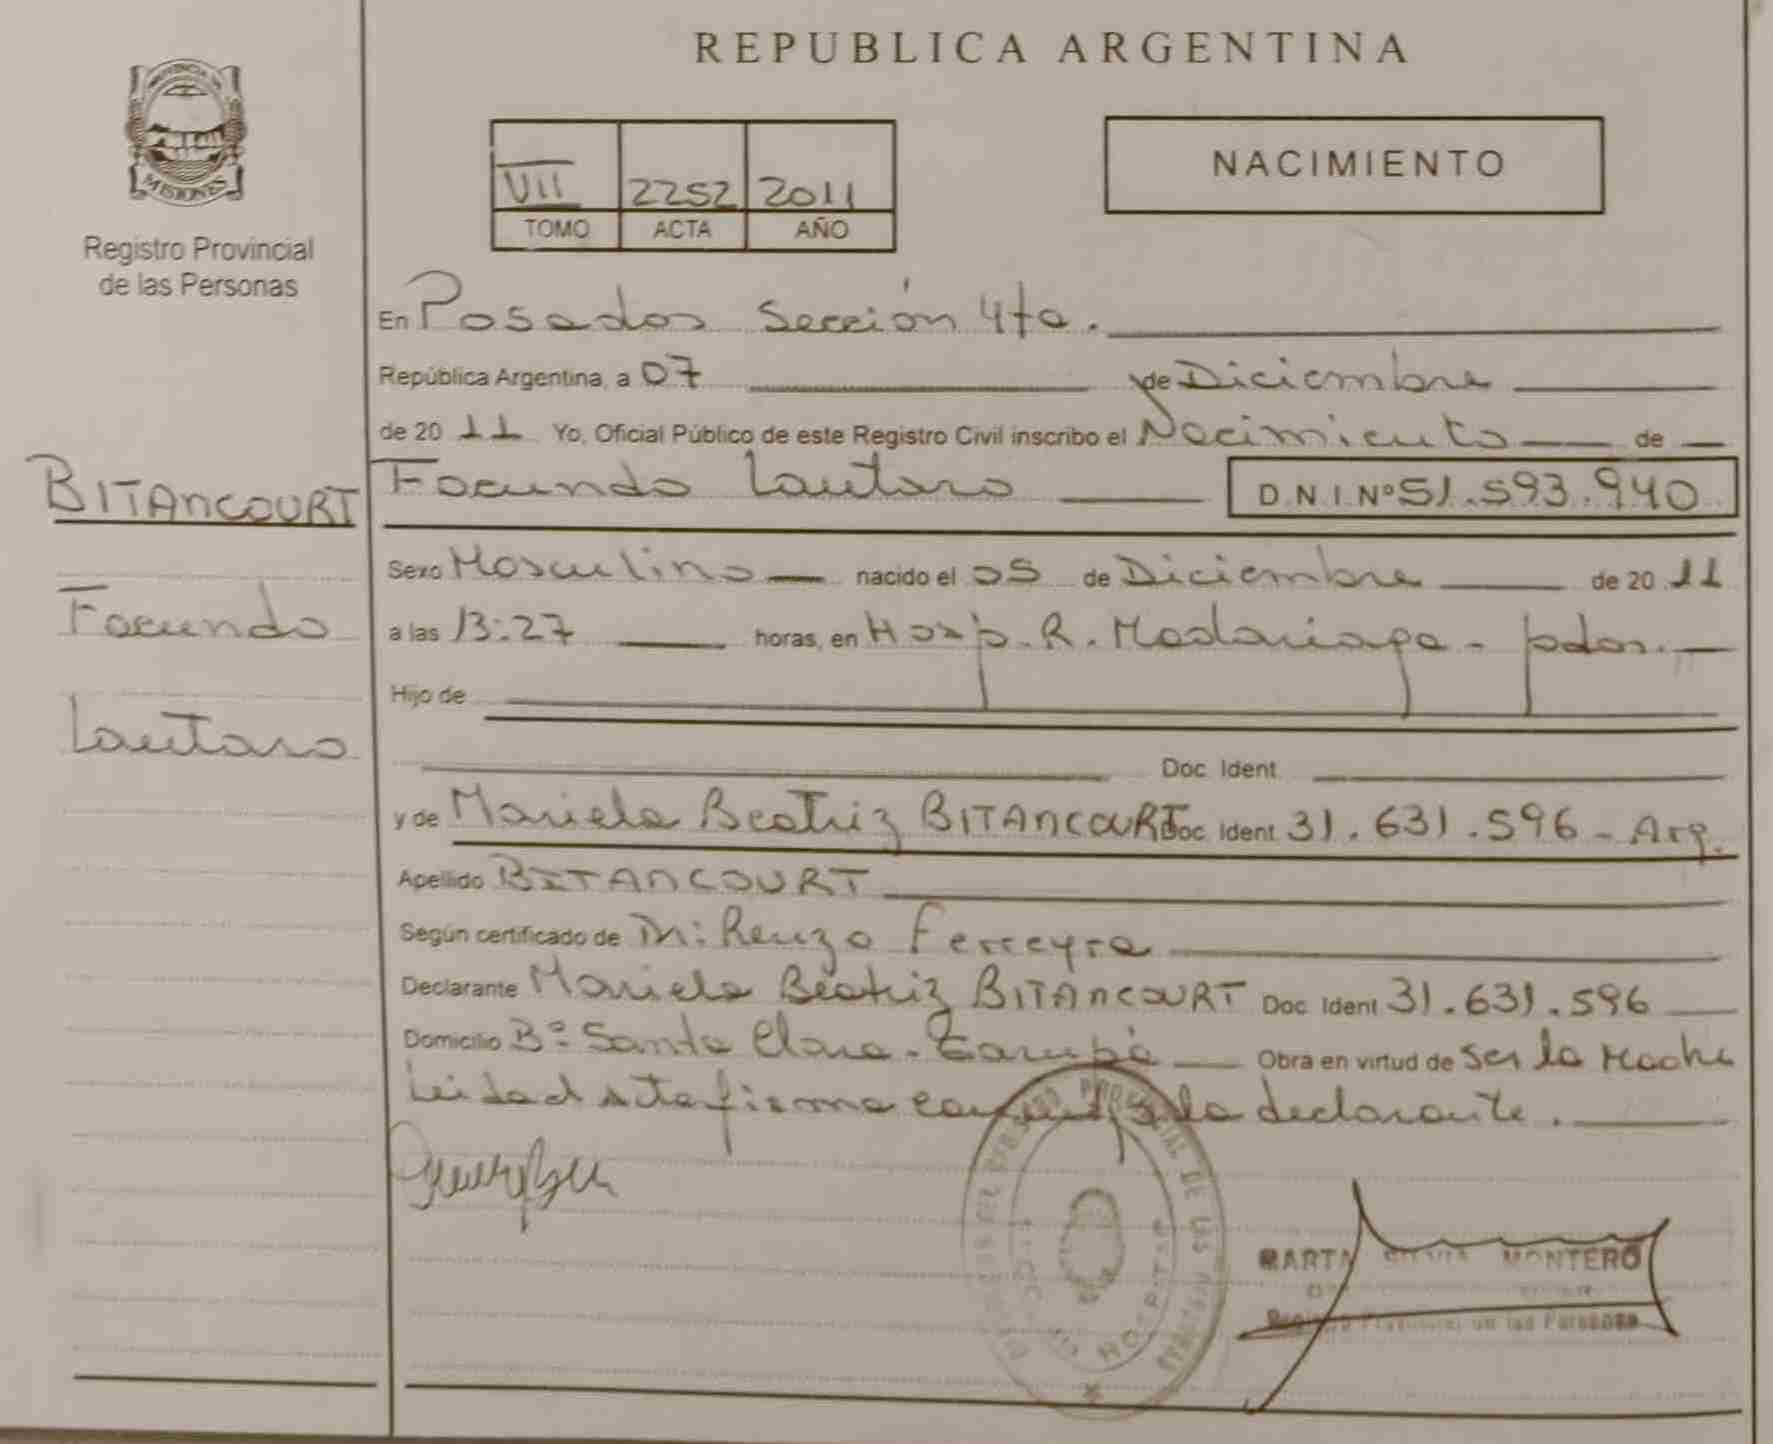 REPUBLICA ARGENTINA
PROVINCIA DE
MISIONES
Registro Provincial
de las Personas
VII 2252 2011
TOMO ACTA AÑO
NACIMIENTO
En Posadas Sección 4ta.
República Argentina, a 07 de Diciembre
de 20 11 Yo, Oficial Público de este Registro Civil inscribo el Nacimiento de
BITANCOURT
Facundo Lautaro D.N.I. Nº 51.593.940
Sexo Masculino nacido el 05 de Diciembre de 20 11
Facundo
a las 13:27 horas, en Hosp. R. Madariaga - pdas.
Hijo de
Lautaro
Doc. Ident.
y de Mariela Beatriz BITANCOURT Doc. Ident. 31.631.596 - Arg.
Apellido BITANCOURT
Según certificado de Dr: Renzo Ferreyra
Declarante Mariela Beatriz BITANCOURT Doc. Ident. 31.631.596
Domicilio Bº Santa Clara - Garupá Obra en virtud de ser la Madre
Leida el acta firma conmigo la declarante.
MARTA SILVIA MONTERO
Registro Provincial de las Personas